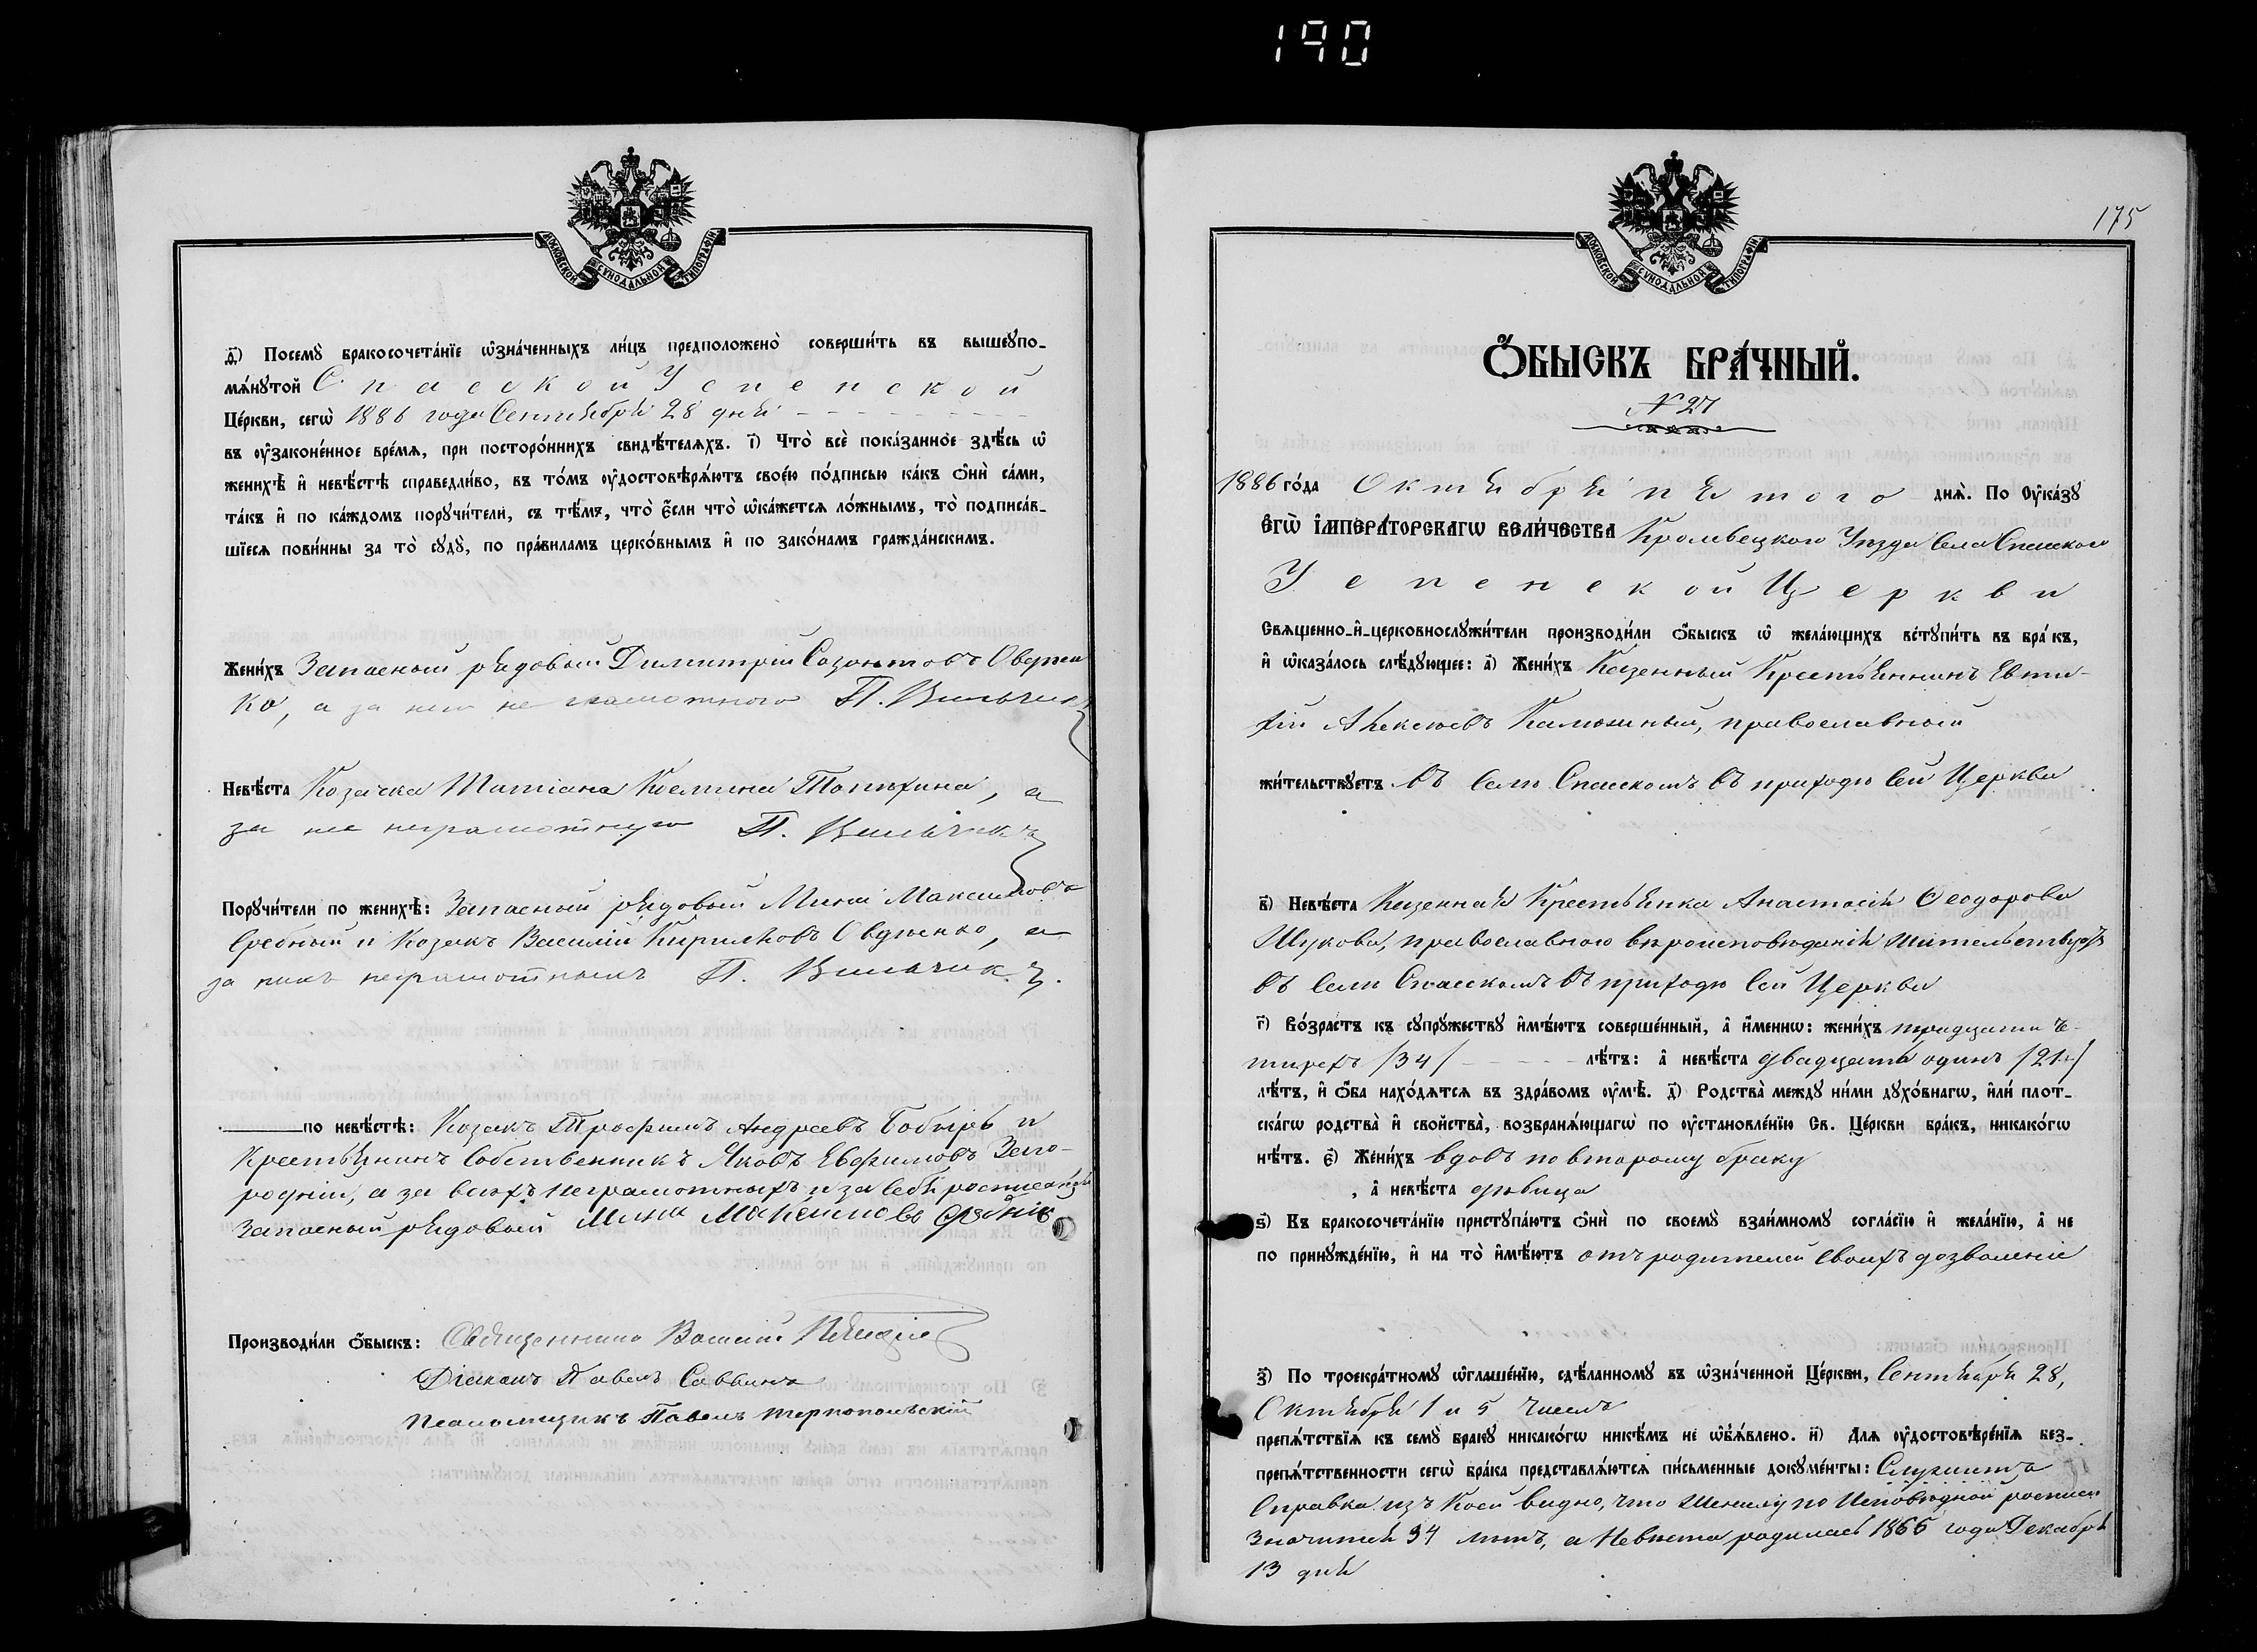 190
МОСКОВСКОЙ СѴНОДАЛЬНОЙ ТИПОГРАФІИ
д҃) Посемꙋ̀ бракосочета́нїе ѡ҆зна́ченныхъ ли́цъ предположено̀ соверши́ть въ вышеꙋпо-
мѧ́нꙋтой Спасской Успенской
Це́ркви, сегѡ̀ 1886 года Сентября 28 дня
въ ᲂу҆зако́не́нное вре́мѧ, при посторо́ннихъ свидѣ́телѧхъ. і҃) Что̀ всѐ пока́занное здѣ́сь ѡ҆
женихѣ̀ и҆ невѣ́стѣ справедли́во, въ то́мъ ᲂу҆достовѣрѧ́ютъ свое́ю по́дписью ка́къ ѻ҆нѝ са́ми,
та́къ и҆ по ка́ждомъ порꙋчи́тели, съ тѣ́мъ, что̀ є҆́сли что̀ ѡ҆ка́жетсѧ ло́жнымъ, то̀ подписа́в-
шїесѧ пови́нны за то̀ сꙋдꙋ̀, по пра́виламъ церко́внымъ и҆ по зако́намъ гражда́нскимъ.
Жени́хъ Запасный рядовый Димитрій Созонтовъ
ко, а за него не грамотного П. Вильчикъ
Невѣ́ста Козачка Татіана Космина, а
за нее неграмотную П. Вильчикъ
Порꙋчи́тели по женихѣ̀: Запасный рядовый Мина Максимовъ
и Козакъ Василій Кириловъ Овдіенко, а
за нихъ неграмотныхъ П. Вильчикъ.
по невѣ́стѣ: Козакъ Трофимъ Андреевъ Бобырь и
Крестьянинъ Собственникъ Яковъ Евфимовъ Запо-
родній, а за всехъ неграмотныхъ и за себя росписался
Запасный рядовый Мина Максимовъ
Производи́ли ѻ҆́быскъ: Священникъ Василій
Діаконъ Павелъ Саввинъ
Псаломщикъ Павелъ Тернопольскій
175
МОСКОВСКОЙ СѴНОДАЛЬНОЙ ТИПОГРАФІИ
Ѻ҆́БЫСКЪ БРА́ЧНЫЙ.
№ 27
1886 го́да Октября пятого днѧ̀. По ᲂу҆ка́зꙋ
Є҆ГѠ̀ І҆МПЕРА́ТОРСКАГѠ ВЕЛИ́ЧЕСТВА Кролевецкого Уѣзда Села Спасского
Успенской Церкви
Свѧщенно-и҆-церковнослꙋжи́тели производи́ли ѻ҆́быскъ ѡ҆ жела́ющихъ встꙋпи́ть въ бра́къ,
и҆ ѡ҆каза́лось слѣ́дꙋющее: а҃) Жени́хъ Казенный Крестьянинъ Евти-
хій Алексѣевъ Калюжный, православный
жи́тельствꙋетъ въ селѣ Спасскомъ въ приходѣ сей Церкви
в҃) Невѣ́ста Казенная Крестьянка Анастасія Ѳеодорова
Шукова, православного вѣроисповѣданія жительствуетъ
въ селѣ Спасскомъ въ приходѣ сей Церкви
г҃) Во́зрастъ къ сꙋпрꙋ́жествꙋ и҆мѣ́ютъ соверше́нный, а҆ и҆́меннѡ: жени́хъ тридцати че-
тырехъ /34/ лѣ́тъ: а҆ невѣ́ста двадцать одинъ /21/
лѣ́тъ, и҆ ѻ҆́ба нахо́дѧтсѧ въ здра́вомъ ᲂу҆мѣ̀. д҃) Родства̀ междꙋ ни́ми дꙋхо́внагѡ, и҆лѝ плот-
ска́гѡ родства̀ и҆ свойства̀, возбранѧ́ющагѡ по ᲂу҆становле́нїю Св. Це́ркви бра́къ, никако́гѡ
нѣ́тъ. є҃) Жени́хъ вдовъ по второму браку
, а҆ невѣ́ста дѣвица
ѕ҃) Къ бракосочета́нїю пристꙋпа́ютъ ѻ҆нѝ по своемꙋ̀ взаи́мномꙋ согла́сїю и҆ жела́нїю, а҆ не
по принꙋжде́нїю, и҆ на то̀ и҆мѣ́ютъ отъ родителей своихъ дозволеніе
з҃) По троекра́тномꙋ ѡ҆глаше́нїю, сдѣ́ланномꙋ въ ѡ҆зна́ченной Це́ркви, Сентября 28,
Октября 1 и 5 числъ
препѧ́тствїѧ къ семꙋ̀ бракꙋ никако́гѡ никѣ́мъ не ѡ҆б̾ѧ́влено. и҃) Длѧ ᲂу҆достовѣре́нїѧ без-
препѧ́тственности сегѡ̀ бра́ка представлѧ́ютсѧ пи́сьменные докꙋме́нты: Служитъ
Справка изъ коей видно, что Жениху по Исповѣдной росписи
Значится 34 лѣтъ, а Невѣста родилась 1865 года Декабря
13 дня